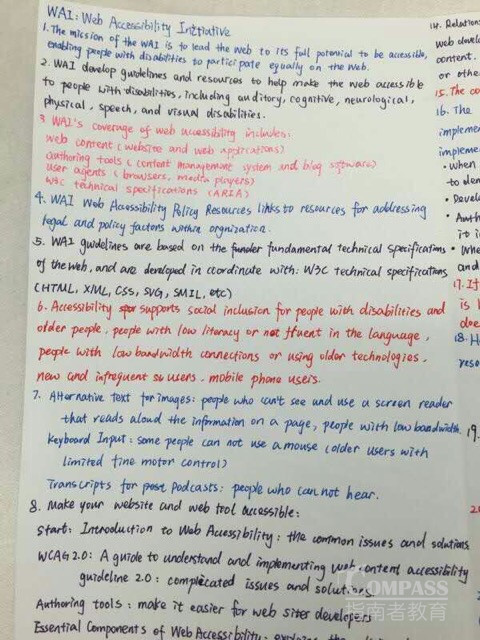 WAI: Web Accessibility Initiative
1. The mission of the WAI is to lead the Web to its full potential to be accessible,
enabling people with disabilities to participate equally on the Web.
2. WAI develop guidelines and resources to help make the web accessible
to people with disabilities, including auditory, cognitive, neurological,
physical, speech, and visual disabilities.
3 WAI's coverage of web accessibility includes:
web content (website and web applications)
authoring tools (content management system and blog software)
user agents (browsers, media players)
W3C technical specifications (ARIA)
4. WAI Web Accessibility Policy Resources links to resources for addressing
legal and policy factors within orgnization.
5. WAI guidelines are based on the fundamental technical specifications
of the web, and are developed in coordinate with: W3C technical specifications
(HTML, XML, CSS, SVG, SMIL, etc)
6. Accessibility supports social inclusion for people with disabilities and
older people, people with low literacy or not fluent in the language,
people with low bandwidth connections or using older technologies.
new and infrequent users. mobile phone users.
7. Alternative text for images: people who can't see and use a screen reader
that reads aloud the information on a page, people with low bandwidth.
Keyboard Input: some people can not use a mouse (older users with
limited fine motor control)
Transcripts for podcasts: people who can not hear.
8. Make your website and web tool accessible:
Start: Introduction to Web Accessibility: the common issues and solutions
WCAG 2.0: A guide to understand and implementing web content accessibility
guideline 2.0: complicated issues and solutions
Authoring tools: make it easier for web sites developers
Essential Components of Web Accessibility: explains the
14. Relation
web devel
content.
or othe
15. The co
16. The
implemen
implemen
• When
to den
• Develo
• Auth
it i
• Whe
and
17. If
is
doe
18. H
reso
19.
20
COMPASS
指南者教育